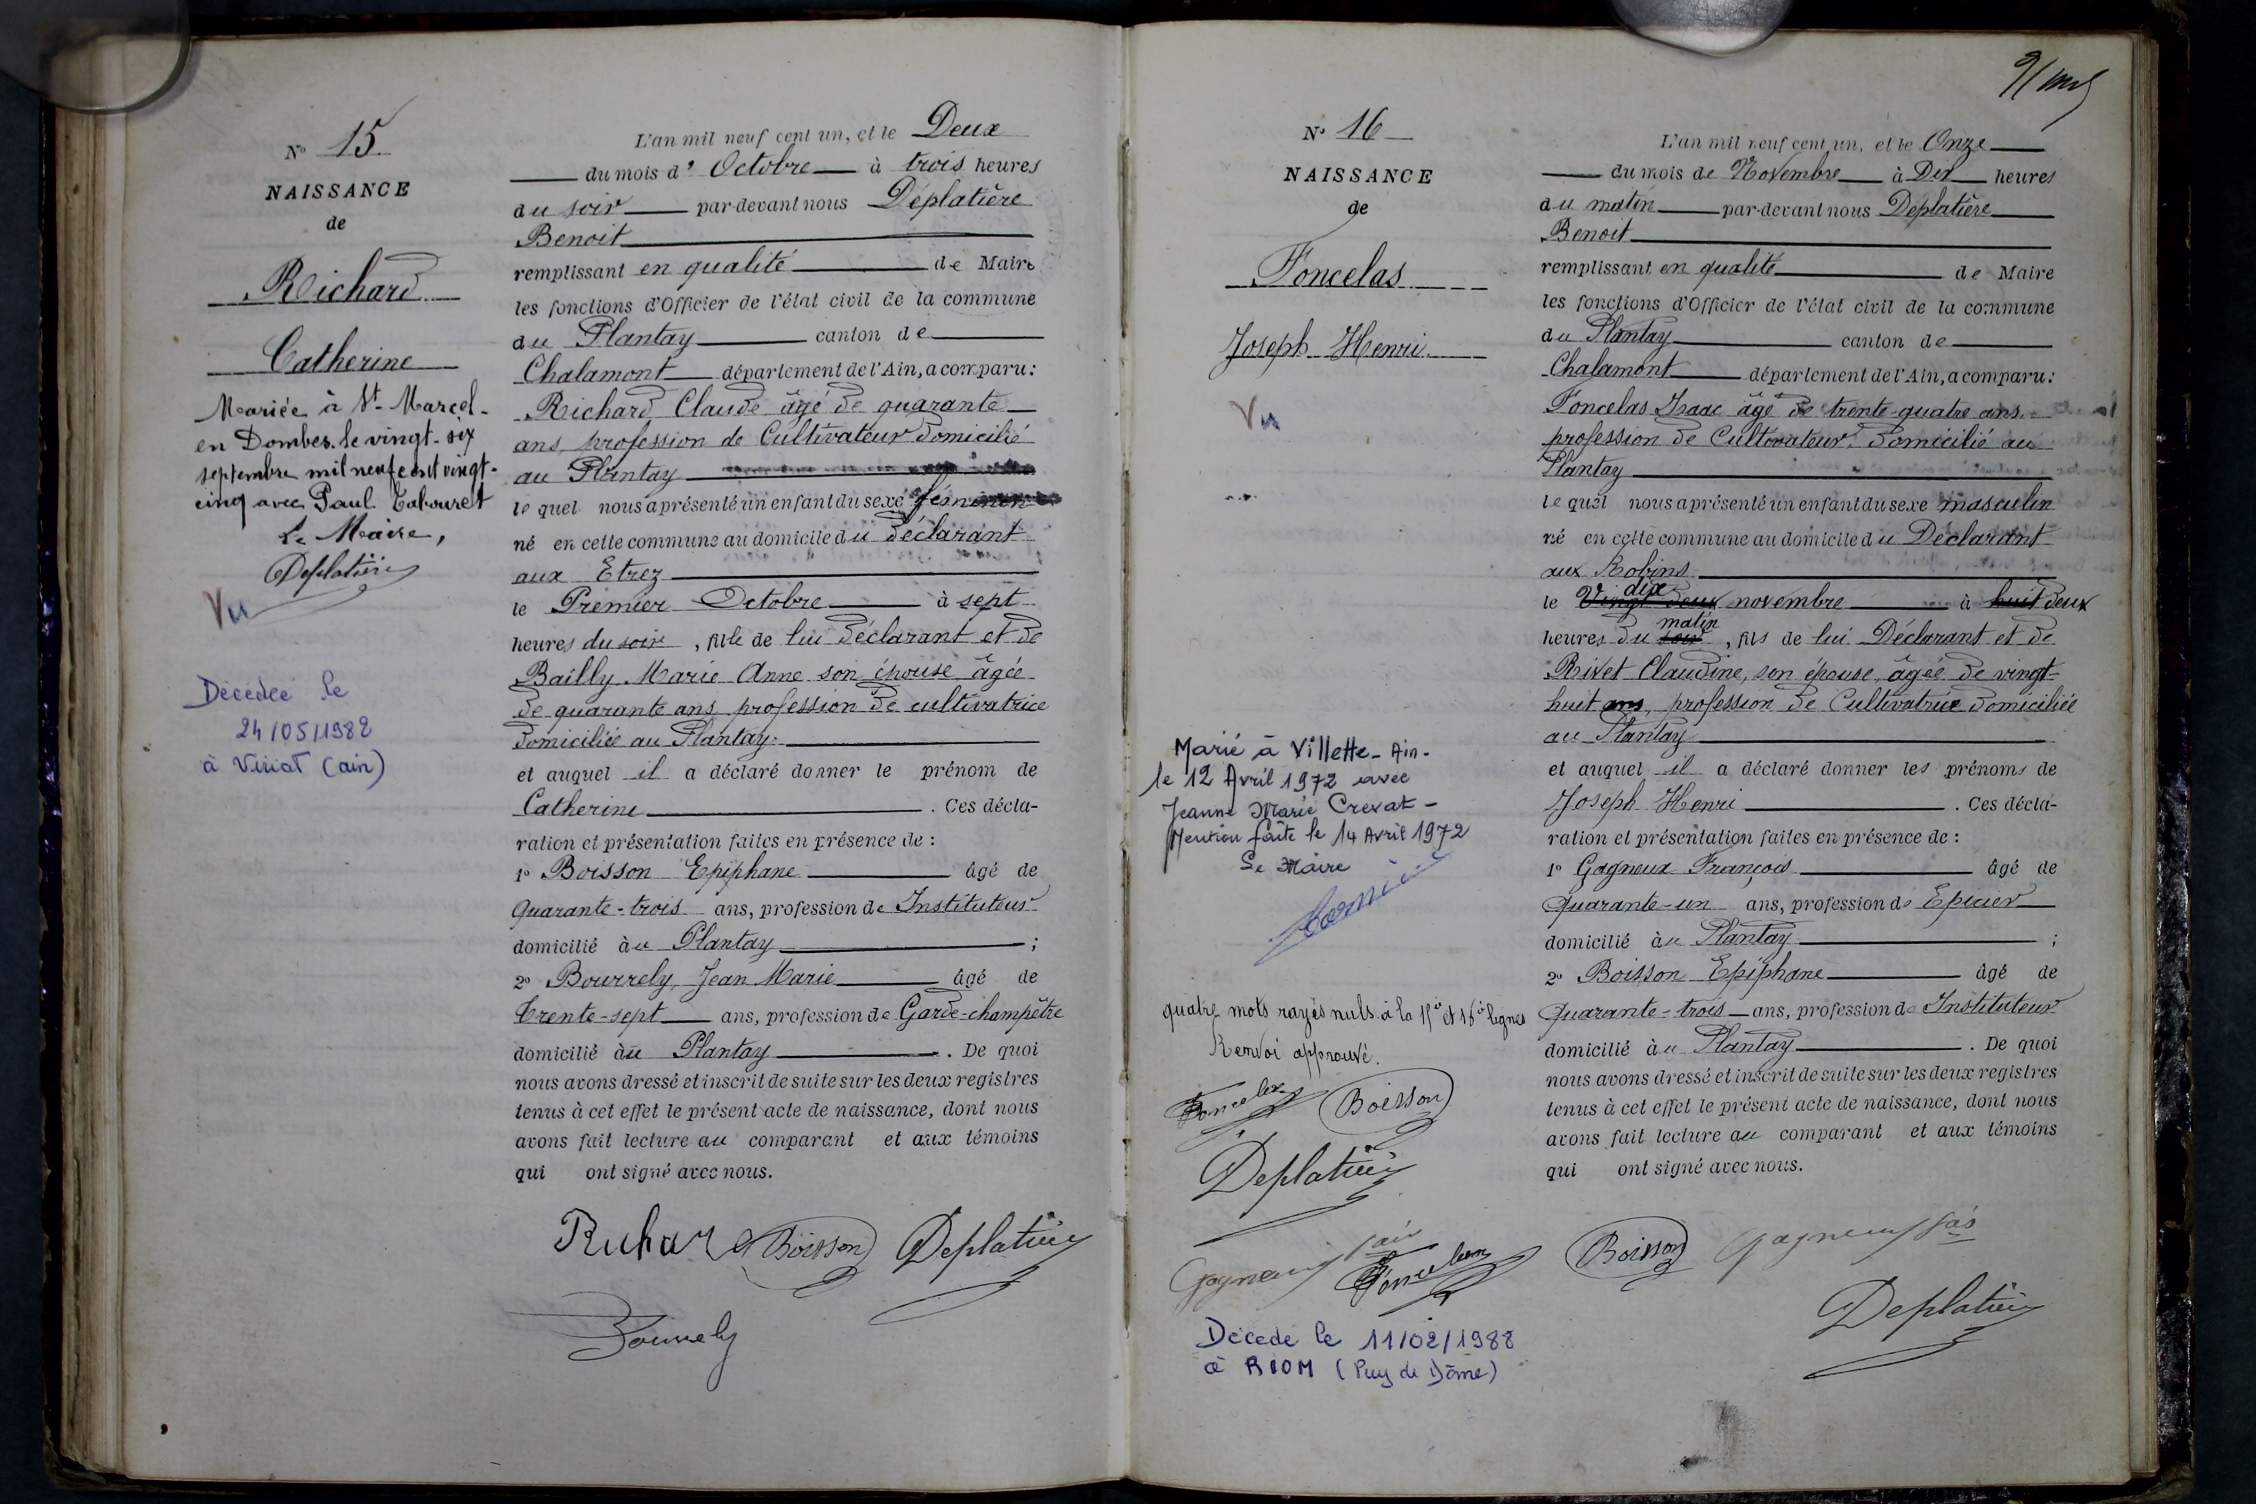 N° 15
NAISSANCE
de
Richard
Catherine
Mariée à St-Marcel-
en Dombes le vingt-six
septembre mil neuf cent vingt-
cinq avec Paul Tabouret
Le Maire,
Deplatière
Vu
Décédée le
24/05/1982
à Viriat (ain)
L'an mil neuf cent un, et le Deux
du mois d' Octobre à trois heures
du soir par-devant nous Déplatière
Benoit
remplissant en qualité de Maire
les fonctions d'Officier de l'état civil de la commune
du Plantay canton de
Chalamont département de l'Ain, a comparu :
Richard Claude âgé de quarante
ans, profession de Cultivateur domicilié
au Plantay
le quel nous a présenté un enfant du sexe féminin
né en cette commune au domicile du déclarant
aux Etrez
le Premier Octobre à sept
heures du soir, fille de lui déclarant et de
Bailly Marie Anne son épouse âgée
de quarante ans profession de cultivatrice
domiciliée au Plantay.
et auquel il a déclaré donner le prénom de
Catherine . Ces décla-
ration et présentation faites en présence de :
1° Boisson Epiphane âgé de
Quarante-trois ans, profession de Instituteur
domicilié au Plantay ;
2° Bourrely Jean Marie âgé de
Trente-sept ans, profession de Garde-champêtre
domicilié au Plantay . De quoi
nous avons dressé et inscrit de suite sur les deux registres
tenus à cet effet le présent acte de naissance, dont nous
avons fait lecture au comparant et aux témoins
qui ont signé avec nous.
Richard Boisson Deplatière
Bourrely
N° 16
NAISSANCE
de
Foncelas
Joseph Henri
Vu
Marié à Villette-Ain-
le 12 Avril 1972 avec
Jeanne Marie Crevat-
Mention faite le 14 Avril 1972
Le Maire
quatre mots rayés nuls à la 15è et 16è lignes
Renvoi approuvé.
Foncelas Boisson
Deplatière
Gagneux fçois Foncelas
Décédé le 11/02/1988
à RIOM (Puy de Dôme)
L'an mil neuf cent un, et le Onze
du mois de Novembre à Dix heures
du matin par-devant nous Déplatière
Benoit
remplissant en qualité de Maire
les fonctions d'Officier de l'état civil de la commune
du Plantay canton de
Chalamont département de l'Ain, a comparu :
Foncelas Isaac âgé de trente-quatre ans
profession de Cultivateur, domicilié au
Plantay
le quel nous a présenté un enfant du sexe masculin
né en cette commune au domicile du Déclarant
aux Robins
dix
le Vingt deux novembre à huit deux
matin
heures du soir, fils de lui Déclarant et de
Rivet Claudine, son épouse, âgée de vingt-
huit ans, profession de Cultivatrice domiciliée
au Plantay
et auquel il a déclaré donner les prénoms de
Joseph Henri . Ces décla-
ration et présentation faites en présence de :
1° Gagneux François âgé de
Quarante-un ans, profession de Epicier
domicilié au Plantay ;
2° Boisson Epiphane âgé de
Quarante-trois ans, profession de Instituteur
domicilié au Plantay . De quoi
nous avons dressé et inscrit de suite sur les deux registres
tenus à cet effet le présent acte de naissance, dont nous
avons fait lecture au comparant et aux témoins
qui ont signé avec nous.
Boisson Gagneux fçois
Deplatière